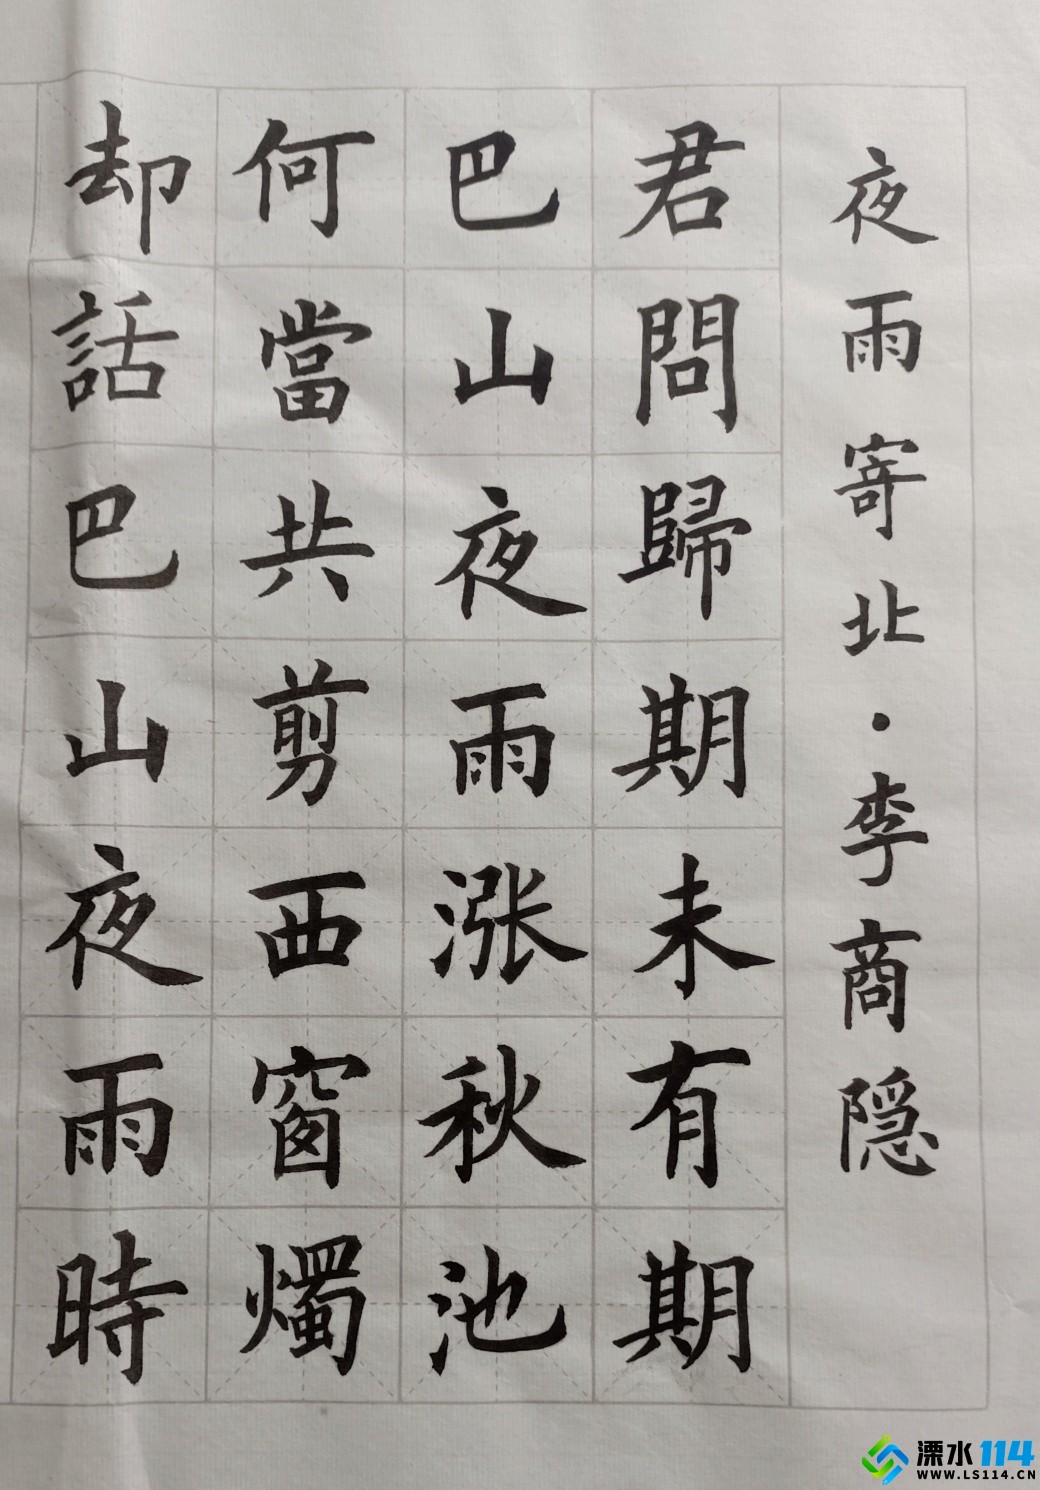 夜雨寄北·李商隐
君問歸期未有期
巴山夜雨涨秋池
何當共剪西窗燭
却話巴山夜雨時
溧水114
WWW.LS114.CN